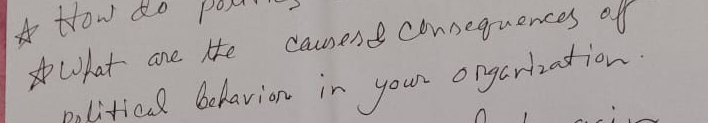 ☆ How do
☆ What are the causes & consequences of
political behavior in your organization.